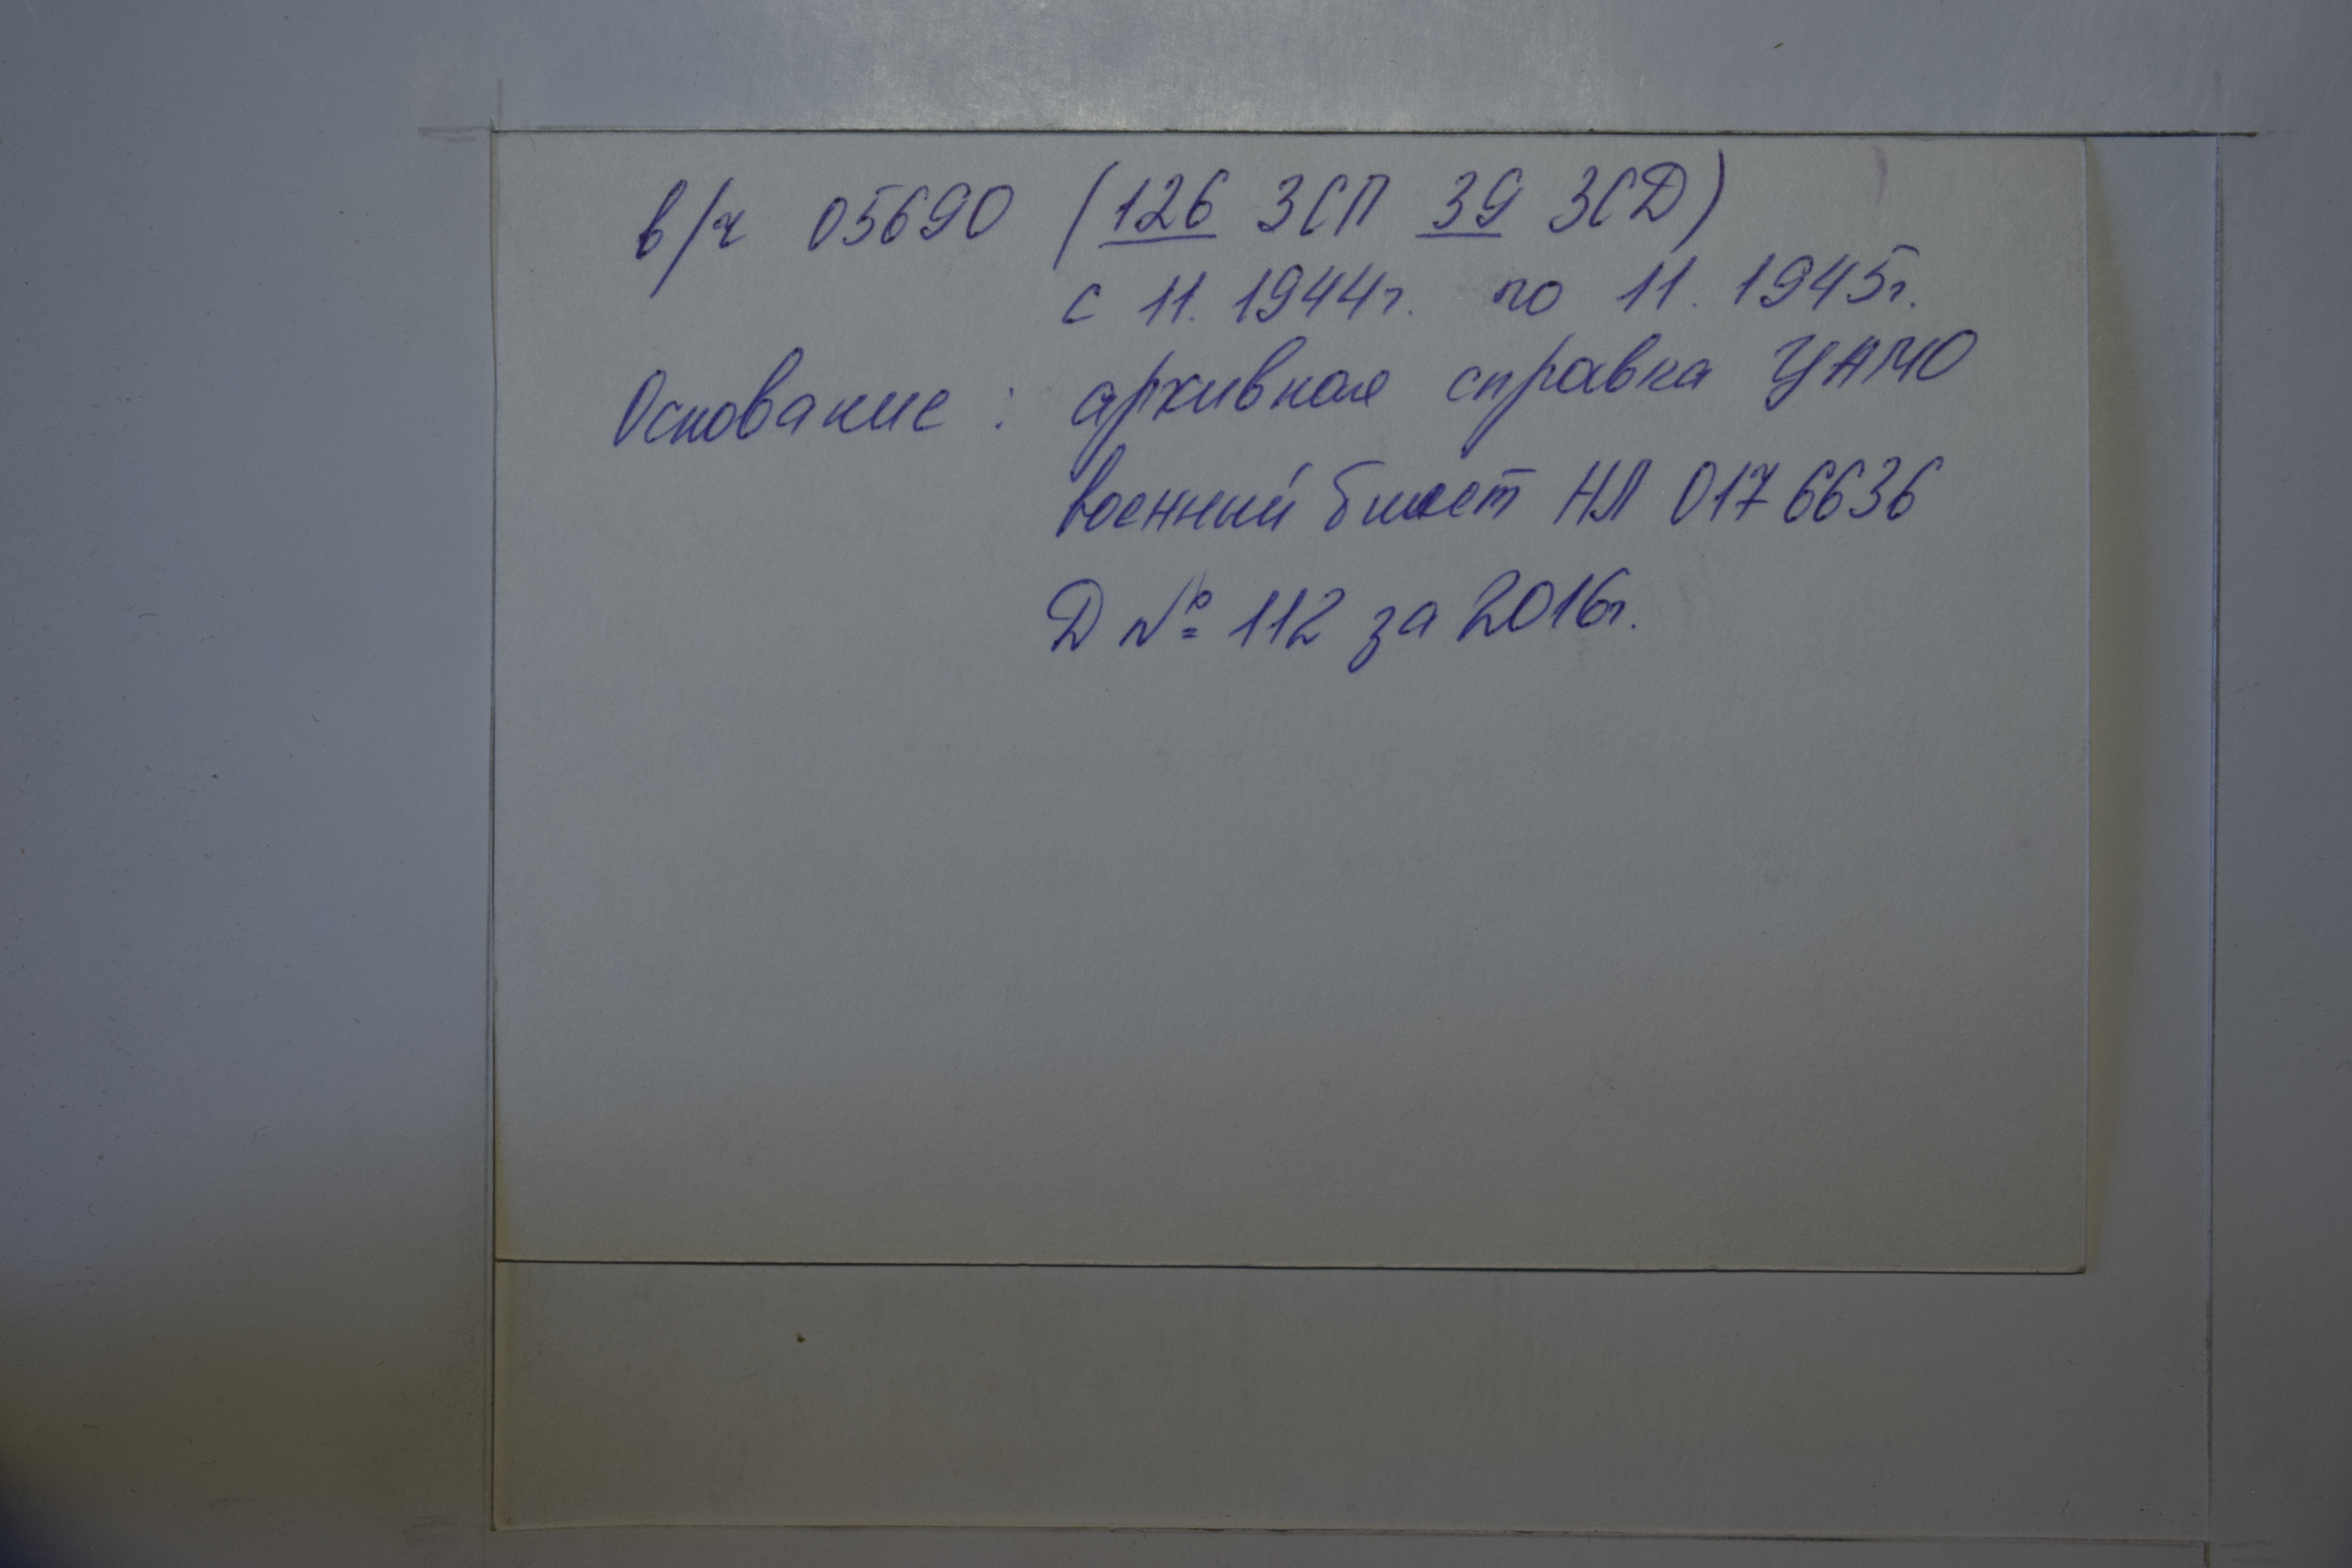 в/ч 05690 (126 ЗСП 39 ЗСД)
с 11. 1944г. по 11. 1945г.
Основание : архивная справка ЦАМО
военный билет НЛ 0176636
Д № 112 за 2016г.